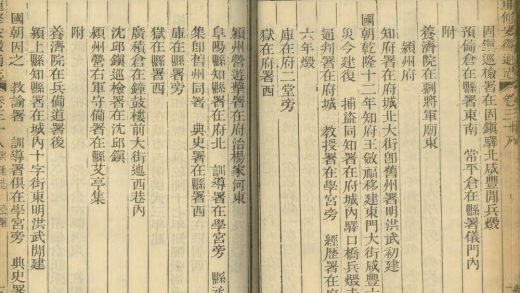 固鎮巡檢署在固鎮驛北咸豐閒兵燬
預備倉在縣署東南 常平倉在縣署儀門內
附
養濟院在劉將軍廟東
潁州府
知府署在府城北大街卽舊州署明洪武初建
國朝乾隆十二年知府王斂福移建東門大街咸豐六
災今建復 捕盜同知署在府城內驛口橋兵燬
通判署在府城 教授署在學宮旁 經歷署在府
六年燬
庫在府二堂旁
獄在府署西
潁州營遊擊署在府治楊家河東
阜陽縣知縣署在府北 訓導署在學宮旁 縣丞
集卽舊州同署 典史署在縣署西
庫在縣署旁
獄在縣署西
廣積倉在鐘鼓樓前大街迤西巷內
沈邱鎮巡檢署在沈邱鎮
潁州營右軍守備署在縣艾亭集
附
養濟院在兵備道署後
潁上縣知縣署在城內十字街東明洪武閒建
國朝因之 教諭署 訓導署俱在學宮旁 典史署
重修安徽通志 卷三十